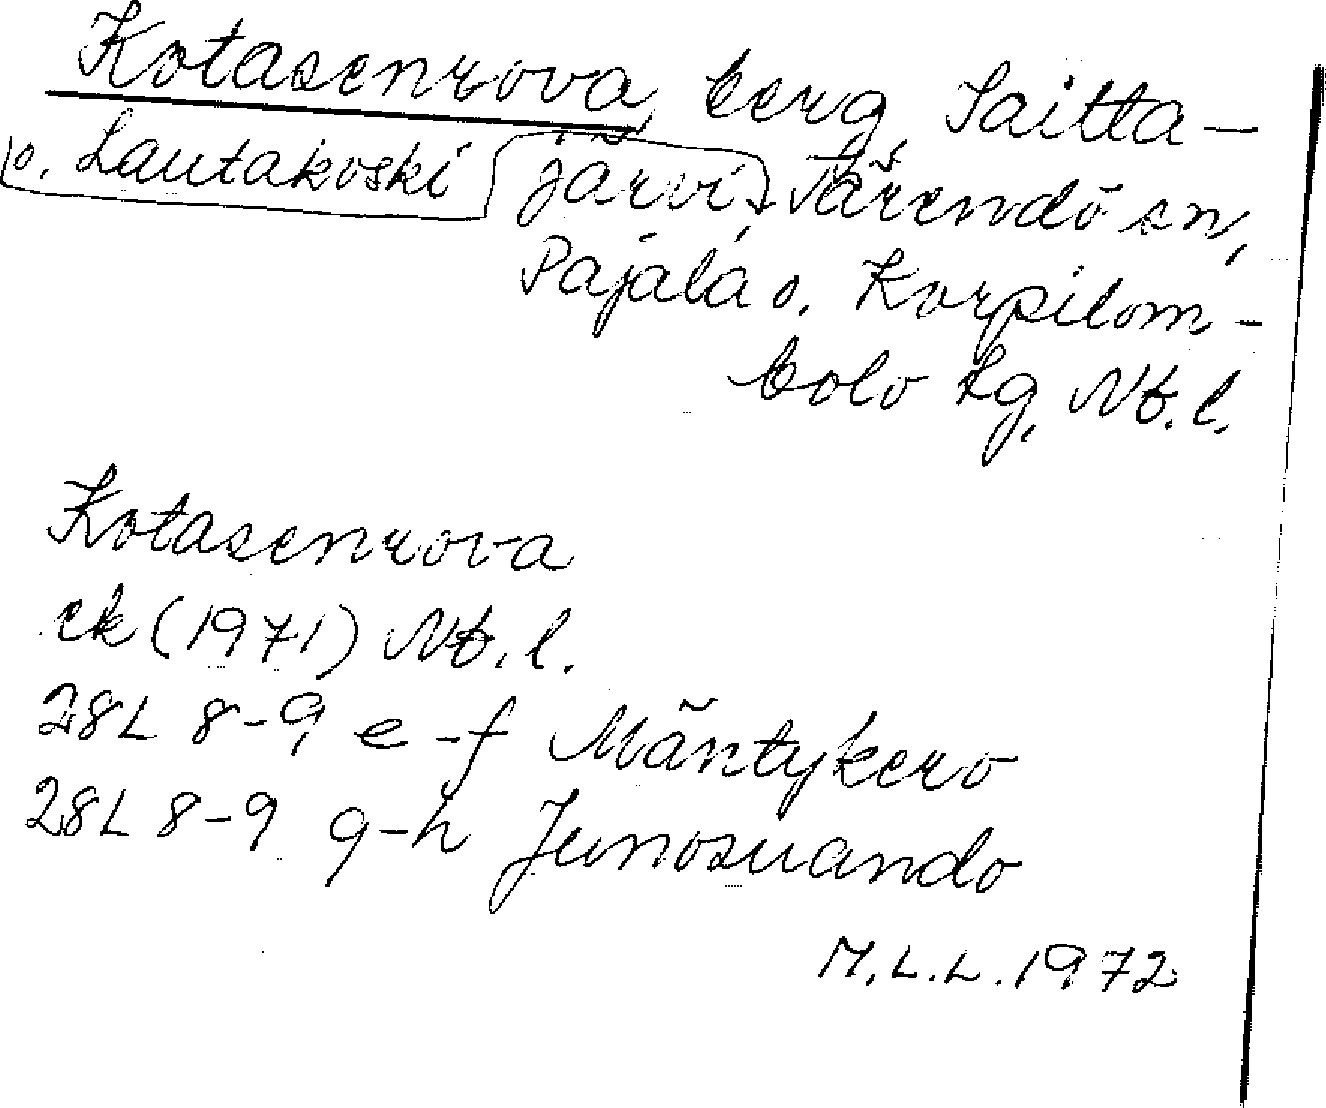 Kotasenrova, berg, Saitta-
o. Lautakoski järvi, Tärendö sn,
Pajala o. Korpilom-
bolo tg, Nb. l.
Kotasenrova
ek (1971) Nb. l.
28L 8-9 e-f Mäntykero
28L 8-9 g-h Junosuando
M.L.L. 1972